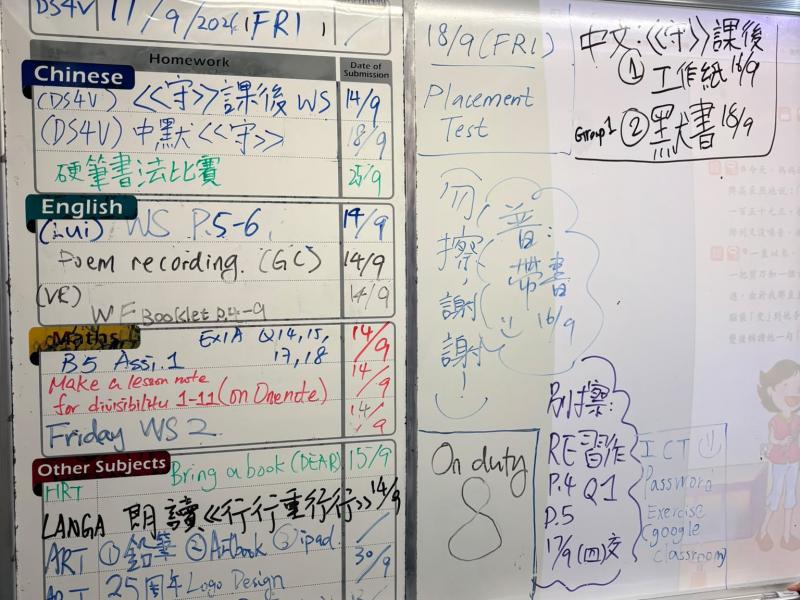 DS4V 11/9/2026 (FRI)
Homework
Date of Submission
Chinese
(DS4V) 《守》課後 WS 14/9
(DS4V) 中默《守》 18/9
硬筆書法比賽 25/9
English
(Lui) WS P.5-6 14/9
Poem recording. (GC) 14/9
(VE) 14/9
WF Booklet p.4-9
Maths
Ex1A Q14,15, 14/9
B5 Assi.1 17,18
Make a lesson note 14/9
for divisibility 1-11 (on Onenote)
Friday WS 2 14/9
Other Subjects
HRT Bring a book (DEAR) 15/9
LANGA 朗讀《行行重行行》 14/9
ART ①鉛筆 ②Artbook ③ipad.
ART 25周年 Logo Design 30/9
18/9 (FRI)
Placement
Test
中文:《守》課後
① 工作紙 16/9
Group 1 ② 默書 18/9
勿擦，謝謝！
普:
帶書
16/9
On duty
8
別擦:
RE習作
P.4 Q1
P.5
17/9 (四)交
ICT
Password
Exercise
(google
classroom)